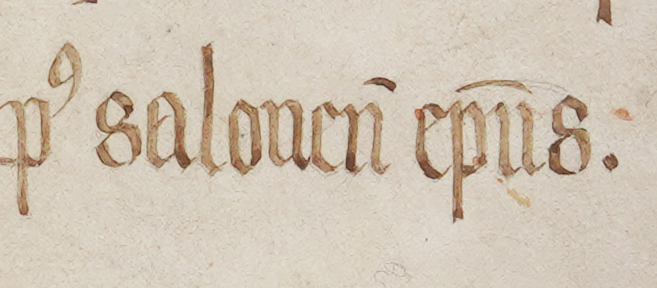 pꝰ salonen̄ ep̄us.